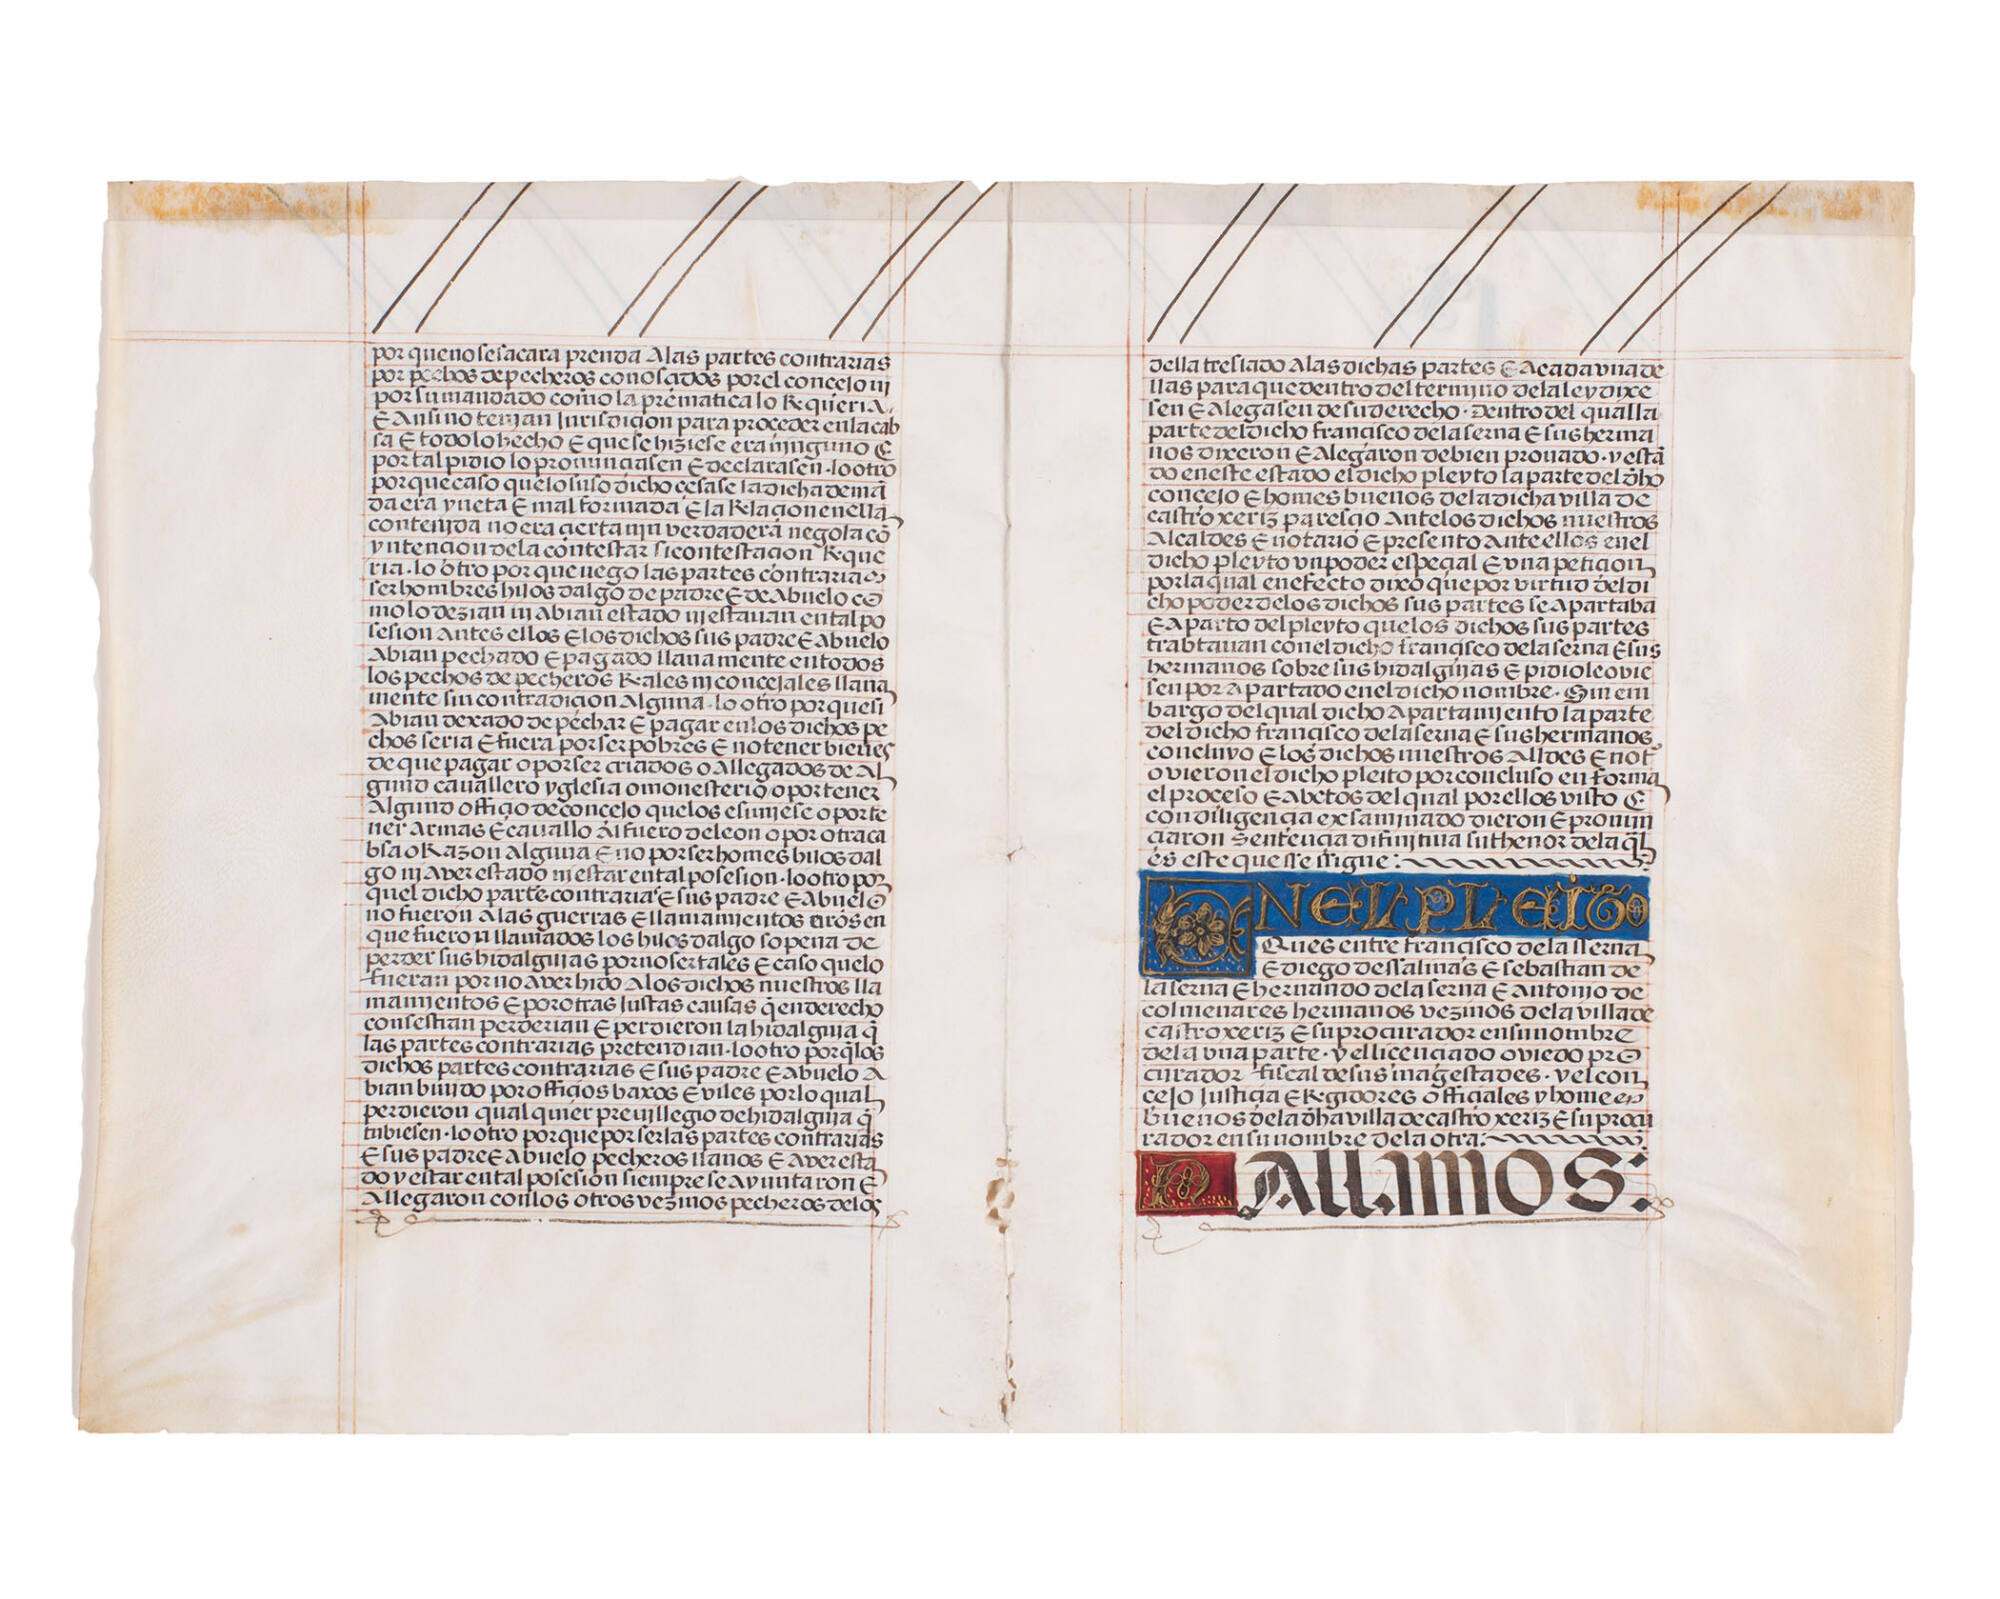 por que no se sacara prenda a las partes contrarias
por pechos de pecheros conosçidos por el conçejo ni
por su mandado como la prematica lo Requeria.
E ansi no tenjan Jurisdiçion para proçeder en la cab
sa E todo lo hecho E que se hiziese era njnguno E
por tal pidio lo pronunçiasen E declarasen · lo otro
por que caso que lo suso dicho çesase la dicha demã
da era yneta E mal formada E la Relaçion en ella
contenjda no era çierta nj verdadera negola cõ
yntençion de la contestar si contestaçion Reque
ria · lo otro por que nego las partes contrarias
ser hombres hijos dalgo de padre E de abuelo co
mo lo dezian nj abian estado nj estavan en tal po
sesion antes ellos E los dichos sus padre E abuelo
abian pechado E pagado llana mente en todos
los pechos de pecheros Reales nj conçejales llana
mente sin contradiçion alguna · lo otro por que si
abian dexado de pechar E pagar en los dichos pe
chos seria E fuera por ser pobres E no tener bienes
de que pagar o por ser criados o allegados de al
gund cavallero yglesia o monesterio o por tener
algund offiçio de conçejo que los esimiese o por te
ner armas E cavallo al fuero de leon o por otra ca
bsa o Razon alguna E no por ser homes hijos dal
go nj aver estado nj estar en tal posesion · lo otro por
quel dicho partes contrarias E sus padre E abuelo
no fueron a las guerras E llamamientos nros en
que fueron llamados los hijos dalgo so pena de
perder sus hidalguias por no ser tales E caso que lo
fueran por no aver hido a los dichos nuestros lla
mamientos E por otras Justas causas q̃ en derecho
consestian perderian E perdieron la hidalguia q̃
las partes contrarias pretendian · lo otro por q̃ los
dichos partes contrarias E sus padre E abuelo a
bian bivido por offiçios baxos E viles por lo qual
perdieron qual quier previllegio de hidalguia q̃
tubiesen · lo otro por que por ser las partes contrarias
E sus padre E abuelo pecheros llanos E aver esta
do y estar en tal posesion siempre se ayuntaron E
allegaron con los otros vezinos pecheros de los
della treslado a las dichas partes E a cada vna de
llas para que dentro del termino de la ley dixe
sen E alegasen de su derecho · dentro del qual la
parte del dicho françisco de la serna E sus herma
nos dixeron E alegaron de bien provado · y estã
do en este estado el dicho pleyto la parte del dho
conçejo E homes buenos de la dicha villa de
castro xeriz paresçio ante los dichos nuestros
alcaldes E notario E presento ante ellos en el
dicho pleyto vn poder espeçial E vna petiçion
por la qual en efecto dixo que por virtud del di
cho poder de los dichos sus partes se apartaba
E aparto del pleyto que los dichos sus partes
trabtavan con el dicho françisco de la serna E sus
hermanos sobre sus hidalguias E pidio le ovie
sen por apartado en el dicho nombre · Sin em
bargo del qual dicho apartamiento la parte
del dicho françisco de la serna E sus hermanos
concluyo E los dichos nuestros alldes E not
ovieron el dicho pleito por concluso en forma
el proçeso E abctos del qual por ellos visto E
con diligençia exsaminado dieron E pronun
çiaron Sentençia difinitiva su thenor de la q̃l
es este que sse ssigue:
EN EL PLEITO
Ques entre françisco de la sserna
E diego de ssalinas E sebastian de
la serna E hernando de la serna E antonjo de
colmenares hermanos vezinos de la villa de
castro xeriz E su procurador en su nombre
de la vna parte · y el liçençiado oviedo pro
curador fiscal de sus magestades · y el con
çejo justiçia E Regidores offiçiales y homes
buenos de la dha villa de castro xeriz E su procu
rador en su nombre de la otra:
FALLAMOS: